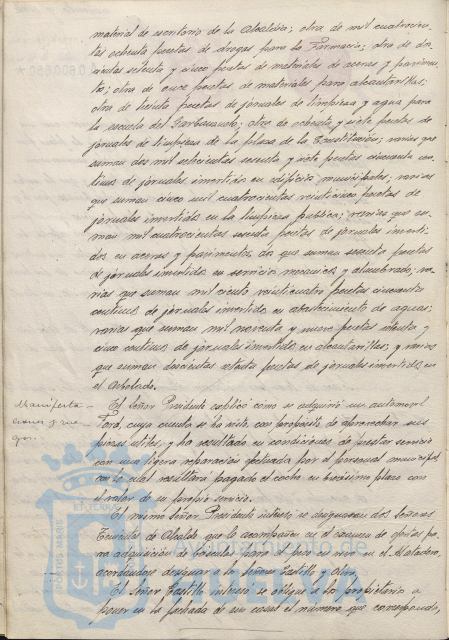 material de escritorio de la Alcaldía; otra de mil cuatrocien-
tas ochenta pesetas de drogas para la Farmacia; otra de do-
cientas setenta y cinco pesetas de materiales de aceras y pavimen-
tos; otra de once pesetas de materiales para alcantarillas;
otra de treinta pesetas de jornales de limpieza y agua para
la escuela del Garbanzuelo; otra de ochenta y siete pesetas de
jornales de limpieza de la plaza de la Constitución; varias que
suman dos mil setecientas sesenta y siete pesetas cincuenta cen-
timos de jornales invertidos en edificios municipales; varias
que suman cinco mil cuatrocientas veinticinco pesetas de
jornales invertidos en la limpieza publica; varias que su-
man mil cuatrocientas sesenta pesetas de jornales inverti-
dos en aceras y pavimentos, dos que suman sesenta pesetas
de jornales invertidos en servicios mecanicos y alumbrado; va-
rias que suman mil ciento veinticuatro pesetas cincuenta
centimos de jornales invertidos en abastecimiento de aguas;
varias que suman mil noventa y nueve pesetas setenta y
cinco centimos de jornales invertidos en alcantarillas; y varias
que suman doscientas setenta pesetas de jornales invertidos en
el Arbolado.
Manifesta-
ciones y rue-
gos.
El Señor Presidente explicó como se adquirió un automovil
Ford, cuya cuenta se ha visto, con proposito de aprovechar sus
piezas utiles, y ha resultado en condiciones de prestar servicio
con una ligera reparación efectuada por el personal municipal
con lo cual resultará pagado el coche en brevisimo plazo con
el valor de su propio servicio.
El mismo Señor Presidente interesó se designaran dos Señores
Tenientes de Alcalde que le acompañen en el examen de ofertas pa-
ra adquisición de báscula para el peso en vivo en el Matadero,
acordandose designar a los Señores Castillo y Oliva.
El Señor Castillo interesó se obligue a los propietarios a
poner en la fachada de sus casas el número que corresponda,
PORTUS MARIS
ET TERRAE
Ayuntamiento de
HUELVA